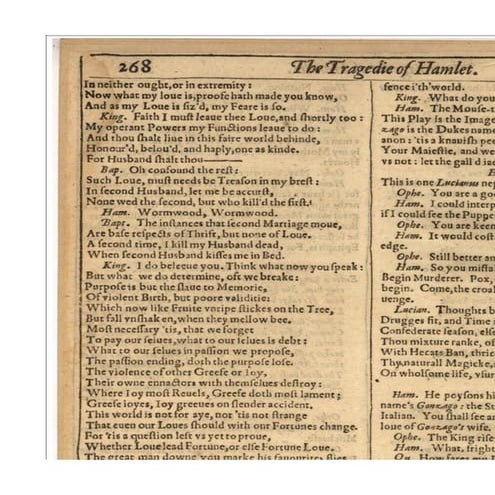 268
The Tragedie of Hamlet.
In neither ought, or in extremity:
Now what my loue is, proofe hath made you know,
And as my Loue is siz'd, my Feare is so.
King. Faith I must leaue thee Loue, and shortly too:
My operant Powers my Functions leaue to do:
And thou shalt liue in this faire world behinde,
Honour'd, belou'd, and haply, one as kinde.
For Husband shalt thou—
Bap. Oh confound the rest:
Such Loue, must needs be Treason in my brest:
In second Husband, let me be accurst,
None wed the second, but who kill'd the first.
Ham. Wormwood, Wormwood.
Bapt. The instances that second Marriage moue,
Are base respects of Thrift, but none of Loue.
A second time, I kill my Husband dead,
When second Husband kisses me in Bed.
King. I do beleeue you. Think what now you speak:
But what we do determine, oft we breake:
Purpose is but the slaue to Memorie,
Of violent Birth, but poore validitie:
Which now like Fruite vnripe stickes on the Tree,
But fall vnshaken, when they mellow bee.
Most necessary 'tis, that we forget
To pay our selues, what to our selues is debt:
What to our selues in passion we propose,
The passion ending, doth the purpose lose.
The violence of other Greefe or Ioy,
Their owne ennactors with themselues destroy:
Where Ioy most Reuels, Greefe doth most lament;
Greefe ioyes, Ioy greeues on slender accident.
This world is not for aye, nor 'tis not strange
That euen our Loues should with our Fortunes change.
For 'tis a question left vs yet to proue,
Whether Loue lead Fortune, or else Fortune Loue.
The great man downe, you marke his fauourites flies,
fence i'th'world.
King. What do you
Ham. The Mouse-t
This Play is the Image
zago is the Dukes name
anon: 'tis a knauish pe
Your Maiestie, and we
vs not: let the gall'd ia
E
This is one Lucianus ne
Ophe. You are a go
Ham. I could interp
if I could see the Puppe
Ophe. You are keen
Ham. It would cost
edge.
Ophe. Still better an
Ham. So you mista
Begin Murderer. Pox,
begin. Come, the croa
uenge.
Lucian. Thoughts b
Drugges fit, and Time
Confederate season, else
Thou mixture ranke, of
With Hecats Ban, thric
Thy naturall Magicke,
On wholsome life, vsur
Ham. He poysons hi
name's Gonzago: the S
Italian. You shall see a
loue of Gonzago's wife.
Ophe. The King rise
Ham. What, fright
Qu. How fares my